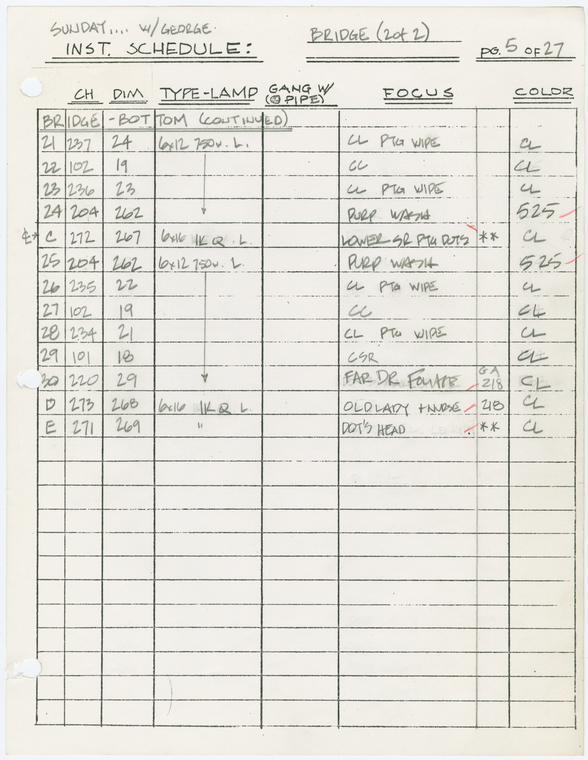 SUNDAY.... W/GEORGE.
BRIDGE (2 of 2)
INST. SCHEDULE:
PG. 5 OF 27
CH DIM TYPE-LAMP GANG W/ (@ PIPE) FOCUS COLOR
BRIDGE - BOTTOM (CONTINUED)
21 237 24 6x12 750w. L. CL PTG WIPE CL
22 102 19 CC CL
23 236 23 CL PTG WIPE CL
24 204 262 PURP WASH 525
¢* C 272 267 6x16 1K Q. L. LOWER SR PTG DOTS ** CL
25 204 262 6x12 750w. L. PURP WASH 525
26 235 22 CL PTG WIPE CL
27 102 19 CC CL
28 234 21 CL PTG WIPE CL
29 101 18 CSR CL
30 220 29 FAR DR FOLIAGE GA 218 CL
D 273 268 6x16 1K Q L OLD LADY + NURSE 218 CL
E 271 269 " DOT'S HEAD ** CL